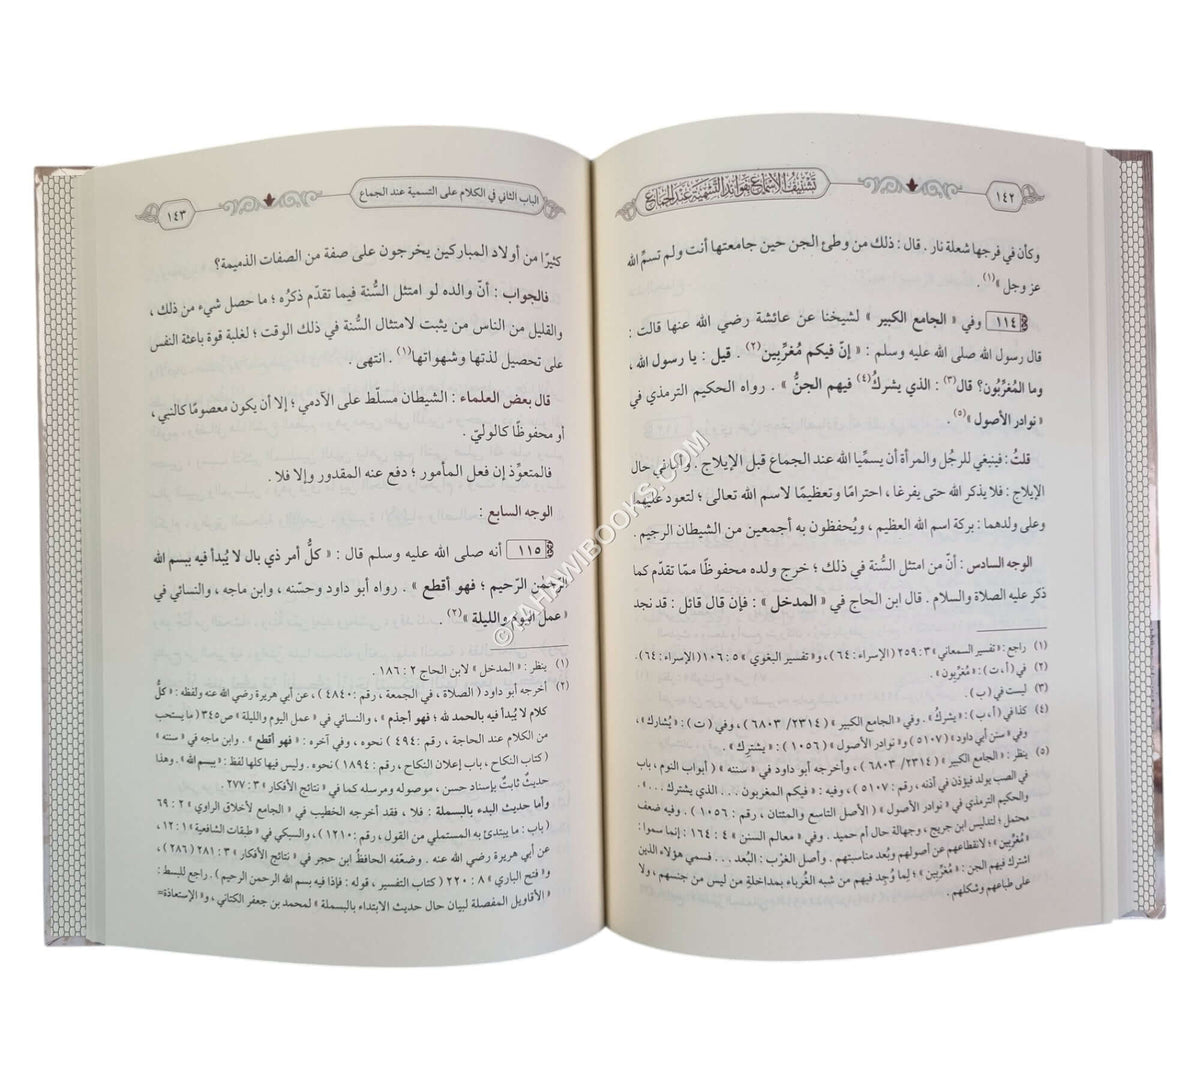 ١٤٢
تشنيف الأسماع بفوائد التسمية عند الجماع
وكأن في فرجها شعلة نار . قال : ذلك من وطئ الجن حين جامعتها أنت ولم تسمِّ الله
عز وجل »(١) .
١١٤ وفي « الجامع الكبير » لشيخنا عن عائشة رضي الله عنها قالت :
قال رسول الله صلى الله عليه وسلم : « إنّ فيكم مُغرِّبين(٢) . قيل : يا رسول الله ،
وما المُغرِّبُون؟ قال(٣) : الذي يشركُ(٤) فيهم الجنُّ » . رواه الحكيم الترمذي في
« نوادر الأصول »(٥) .
قلتُ : فينبغي للرجُل والمرأة أن يسمِّيا الله عند الجماع قبل الإيلاج . وأمّا في حال
الإيلاج : فلا يذكر الله حتى يفرغا ، احترامًا وتعظيمًا لاسم الله تعالى ؛ لتعود عليهما
وعلى ولدهما : بركة اسم الله العظيم ، ويُحفظون به أجمعين من الشيطان الرجيم .
الوجه السادس : أنّ من امتثل السُّنة في ذلك ؛ خرج ولده محفوظًا ممّا تقدّم كما
ذكر عليه الصلاة والسلام . قال ابن الحاج في « المدخل » : فإن قال قائل : قد نجد
(١) راجع : « تفسير السمعاني » ٣ : ٢٥٩ ( الإسراء : ٦٤ ) ، و« تفسير البغوي » ٥ : ١٠٦ ( الإسراء : ٦٤ ) .
(٢) في ( أ ، ت ) : « مُغرِّبون » .
(٣) ليست في ( ب ) .
(٤) كذا في ( أ ، ب ) : « يشركُ » . وفي « الجامع الكبير » ( ٢٣١٤/ ٦٨٠٣ ) ، وفي ( ت ) : « يُشارك » ،
وفي « سنن أبي داود » ( ٥١٠٧ ) و« نوادر الأصول » ( ١٠٥٦ ) : « يشترِك » .
(٥) ينظر : « الجامع الكبير » ( ٢٣١٤/ ٦٨٠٣ ) ، وأخرجه أبو داود في « سننه » ( أبواب النوم ، باب
في الصبي يولد فيؤذن في أذنه ، رقم : ٥١٠٧ ) ، وفيه : « فيكم المغربون . . . الذي يشترك . . . » .
والحكيم الترمذي في « نوادر الأصول » ( الأصل التاسع والمئتان ، رقم : ١٠٥٦ ) . وفيه ضعف
محتمل ؛ لتدليس ابن جريج ، وجهالة حال أم حميد . وفي « معالم السنن » ٤ : ١٦٤ : إنما سموا :
« مغرِّبين » ؛ لانقطاعهم عن أصولهم وبُعد مناسبتهم . وأصل الغرْب : البُعد . . . فسمي هؤلاء الذين
اشترك فيهم الجن : « مغرِّبين » ؛ لِما وُجد فيهم من شبه الغُرباء بمداخلةِ من ليس من جنسهم ، ولا
على طباعهم وشكلهم .
الباب الثاني في الكلام على التسمية عند الجماع
١٤٣
كثيرًا من أولاد المباركين يخرجون على صفة من الصفات الذميمة؟
فالجواب : أنّ والده لو امتثل السُّنة فيما تقدّم ذكرُه ؛ ما حصل شيء من ذلك ،
والقليل من الناس من يثبت لامتثال السُّنة في ذلك الوقت ؛ لغلبة قوة باعثة النفس
على تحصيل لذتها وشهواتها(١) . انتهى .
قال بعض العلماء : الشيطان مسلّط على الآدمي ؛ إلا أن يكون معصومًا كالنبي ،
أو محفوظًا كالوليّ .
فالمتعوِّذ إن فعل المأمور ؛ دفع عنه المقدور وإلا فلا .
الوجه السابع :
١١٥ أنه صلى الله عليه وسلم قال : « كلُّ أمر ذي بال لا يُبدأ فيه ببسم الله
الرحمٰن الرّحيم ؛ فهو أقطع » . رواه أبو داود وحسّنه ، وابن ماجه ، والنسائي في
« عمل اليوم والليلة »(٢) .
(١) ينظر : « المدخل » لابن الحاج ٢ : ١٨٦ .
(٢) أخرجه أبو داود ( الصلاة ، في الجمعة ، رقم : ٤٨٤٠ ) ، عن أبي هريرة رضي الله عنه ولفظه : « كلُّ
كلام لا يُبدأ فيه بالحمد لله ؛ فهو أجذم » ، والنسائي في « عمل اليوم والليلة » ص٣٤٥ ( ما يستحب
من الكلام عند الحاجة ، رقم : ٤٩٤ ) نحوه ، وفي آخره : « فهو أقطع » . وابن ماجه في « سننه »
( كتاب النكاح ، باب إعلان النكاح ، رقم : ١٨٩٤ ) نحوه . وليس فيها كلها لفظ : « ببسم الله » . وهذا
حديثٌ ثابتٌ بإسناد حسن ، موصوله ومرسله كما في « نتائج الأفكار » ٣ : ٢٧٧ .
وأما حديث البدء بالبسملة : فلا ، فقد أخرجه الخطيب في « الجامع لأخلاق الراوي » ٢ : ٦٩
( باب : ما يبتدئ به المستملي من القول ، رقم : ١٢١٠ ) ، والسبكي في « طبقات الشافعية » ١ : ١٢ ،
عن أبي هريرة رضي الله عنه . وضعّفه الحافظ ابن حجر في « نتائج الأفكار » ٣ : ٢٨١ ( ٢٨٦ ) ،
و« فتح الباري » ٨ : ٢٢٠ ( كتاب التفسير ، قوله : فإذا فيه بسم الله الرحمن الرحيم ) . راجع للبسط :
« الأقاويل المفصلة لبيان حال حديث الابتداء بالبسملة » لمحمد بن جعفر الكتاني ، و« الإستعاذة=
©TAHAWIBOOKS.COM